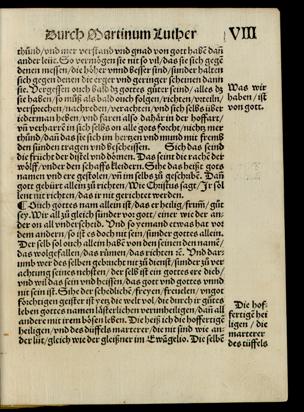 Durch Martinum Luther VIII
thůnd/ vnd mer verstand vnd gnad von gott habē dañ
ander leüt. So vermögen sie nit so vil/ das sie sich gegē
denen messen/ die höher vnnd besser sind/ sunder halten
sich gegen denen die erger vnd geringer scheinen dann
sie. Vergessen ouch bald dz gottes güter seind/ alles dz
sie haben/ so můß als bald ouch folgen/ richten/ vrteiln/
versprechen/ nachreden/ verachten/ vnd sich selbs über
iederman heben/ vnd faren also dahär in der hoffart/
vñ verharrē in sich selbs on alle gots forcht/ nichtz mer
thůnd/ dañ das sie sich im hertzen vnd mund mit frembden
sünden tragen vnd bescheissen. Sich das seind
die frücht der distel vnd dornen. Das seind die rachē der
wölff/ vnder den schaffs kleider. Sihe das heißt gots
namen vnd ere gestolen/ vñ im selbs zů geschribē. Dañ
gott gebürt allein zů richten/ Wie Christus sagt/ Ir söllent
nit richten/ das ir nit gerichtet werden.
¶ Ouch gottes nam allein ist/ das er heilig/ frum/ gůt
sey. Wir all zů gleich sunder vor gott/ einer wie der ander
on all vnderscheid. Vnd so yemand etwas hat vor
dem andern/ so ist es doch nit sein/ sunder gottes allein.
Der sell sol ouch allein habē von den seinen den namē/
das wolgefallen/ das rümen/ das richten ꝛc. Vnd darumb
wer des selben gebrucht nit zů dienst/ sunder zů verachtung
seines nehsten/ der selb ist ein gottes ere dieb/
vnd wil das sein vnd heissen/ das gott vnd gottes vnnd
nit sein ist. Sihe der schedlichē/ freyen/ freuelen/ vngotförchtigen
geister ist yetz die welt vol/ die durch ir gůtes
leben gottes namen lästerlichen verunheiligen/ dañ all
andere mit irem bösen leben. Die heiß ich die hoffertige
heiligen/ vnd des düffels marterer/ die nit sind wie ander
lüt/ gleich wie der gleißner im Ewāgelio. Die selbē
Was wir
haben/ ist
von gott.
Die hoffertigē
heiligen/
die
marterer
des tüffels